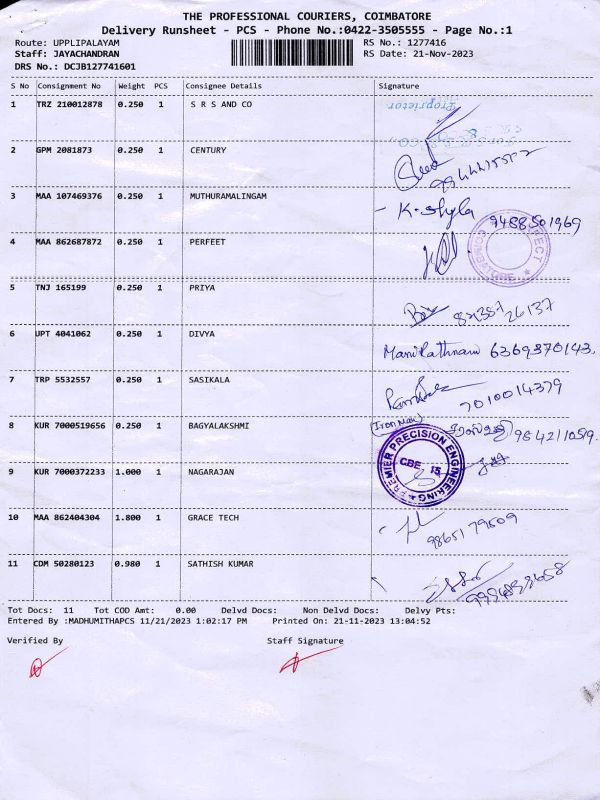 THE PROFESSIONAL COURIERS, COIMBATORE
Delivery Runsheet - PCS - Phone No.:0422-3505555 - Page No.:1
Route: UPPLIPALAYAM RS No.: 1277416
Staff: JAYACHANDRAN RS Date: 21-Nov-2023
DRS No.: DCJB127741601
S No Consignment No Weight PCS Consignee Details Signature
1 TRZ 210012878 0.250 1 S R S AND CO Proprietor
2 GPM 2081873 0.250 1 CENTURY
3 MAA 107469376 0.250 1 MUTHURAMALINGAM K. Shyla 9488501969
4 MAA 862687872 0.250 1 PERFEET
5 TNJ 165199 0.250 1 PRIYA
6 UPT 4041062 0.250 1 DIVYA Manirathnam 6369370143.
7 TRP 5532557 0.250 1 SASIKALA 7010014379
8 KUR 7000519656 0.250 1 BAGYALAKSHMI (Iron Man)
PREMIER PRECISION ENGINEERING CBE 15
9 KUR 7000372233 1.000 1 NAGARAJAN
10 MAA 862404304 1.800 1 GRACE TECH
11 CDM 50280123 0.980 1 SATHISH KUMAR
Tot Docs: 11 Tot COD Amt: 0.00 Delvd Docs: Non Delvd Docs: Delvy Pts:
Entered By :MADHUMITHAPCS 11/21/2023 1:02:17 PM Printed On: 21-11-2023 13:04:52
Verified By Staff Signature